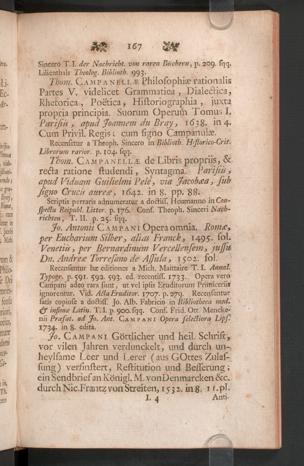 167
Sincero T. I. der Nachricht. von raren Büchern, p. 209. sqq.
Lilienthals Theolog. Biblioth. 993.
Thom. CAMPANELLÆ Philosophiæ rationalis
Partes V. videlicet Grammatica, Dialectica,
Rhetorica, Poëtica, Historiographia, juxta
propria principia. Suorum Operum Tomus I.
Parisiis, apud Joannem du Bray, 1638. in 4.
Cum Privil. Regis: cum signo Campanulæ.
Recensetur a Theoph. Sincero in Biblioth. Historico-Crit.
Librorum rarior. p. 104. sqq.
Thom. CAMPANELLÆ de Libris propriis, &
recta ratione studendi, Syntagma. Parisiis,
apud Viduam Guilielmi Pelé, via Jacobæa, sub
signo Crucis aureæ, 1642. in 8. pp. 88.
Scriptis perraris adnumeratur a doctiss. Heumanno in Con-
spectu Reipubl. Litter. p. 176. Conf. Theoph. Sinceri Nach-
richten, T. II. p. 25. sqq.
Jo. Antonii CAMPANI Opera omnia. Romæ,
per Eucharium Silber, alias Franck, 1495. fol.
Venetiis, per Bernardinum Vercellensem, jussu
Dn. Andreæ Torresano de Assula, 1502. fol.
Recensentur hæ editiones a Mich. Maittaire T. I. Annal.
Typogr. p. 591. 592. 593. ed. recentiss. 1733. Opera vero
Campani adeo rara sunt, ut vel ipsis Eruditorum Primiceriis
ignorentur. Vid. Acta Eruditor. 1707. p. 271. Recensentur
satis copiose a doctiss. Jo. Alb. Fabricio in Bibliotheca med.
& infimæ Latin. T. I. p. 900. sqq. Conf. Frid. Ott. Mencke-
nii Præfat. ad Jo. Ant. CAMPANI Opera selectiora Lips.
1734. in 8. edita.
Jo. CAMPANI Göttlicher und heil. Schrift,
vor vilen Jahren verdunckelt, und durch un-
heylsame Leer und Lerer (aus GOttes Zulas-
sung) verfinstert, Restitution und Besserung;
ein Sendbrief an Königl. M. von Denmarcken &c.
durch Nic. Frantz von Streiten, 1532. in 8. 11. pl.
L 4 Anti-